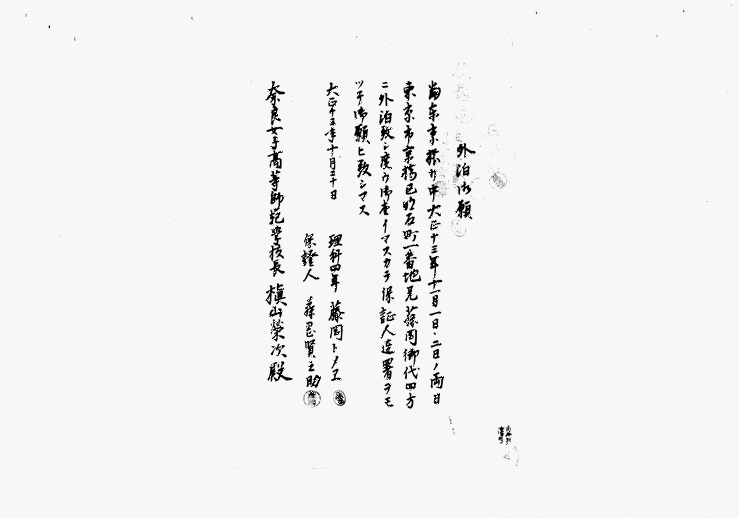 外泊御願
当東京旅行中大正十三年十一月一日、二日ノ両日
東京市京橋区明石町一番地兄藤岡御代四方
ニ外泊致シ度ウ御座イマスカラ保証人連署ヲモ
ツテ御願ヒ致シマス
大正十三年十月二十日
理科四年 藤岡トメエ
保證人 賢之助
奈良女子高等師範学校長 槇山榮次殿